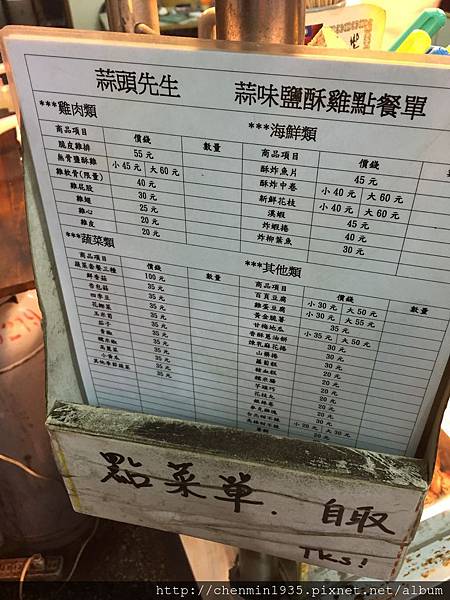 蒜頭先生 蒜味鹽酥雞點餐單
***雞肉類
商品項目 價錢 數量
脆皮雞排 55元
無骨鹽酥雞 小45元 大60元
雞軟骨(限量) 40元
雞花股 30元
雞翅 25元
雞心 20元
雞皮 20元
***海鮮類
商品項目 價錢
酥炸魚片 45元
酥炸中卷 小40元 大60元
新鮮花枝 小40元 大60元
溪蝦 45元
炸蝦捲 40元
炸柳葉魚 30元
***蔬菜類
商品項目 價錢 數量
蔬菜套餐三種 100元
鮮香菇 35元
杏包菇 35元
四季豆 35元
花椰菜 35元
玉米筍 35元
茄子 35元
青椒 35元
糯米椒 35元
高麗菜 35元
小黃瓜 35元
其他季節蔬菜 35元
***其他類
商品項目 價錢 數量
百頁豆腐 小30元 大50元
雞蛋豆腐 小30元 大55元
黃金脆薯 35元
甘梅地瓜 小35元 大50元
香酥蔥油餅 30元
煉乳麻花捲 30元
山藥捲 30元
蘿蔔糕 30元
豬血糕 20元
糯米腸 20元
芋頭巧
點菜單. 自取
TKS!
http://chenmin1935.pixnet.net/album